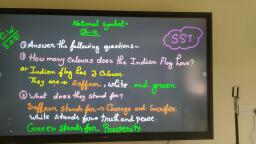 National Symbols
Ch-12
C.W
SST
① Answer the following questions-
① How many Colours does the Indian Flag have?
A: Indian flag has 3 Colours.
They are → Saffron, white and green
② What does they stand for?
Saffron stands for → Courage and Sacrifice.
White stands for → truth and peace.
Green Stands for Prosperity